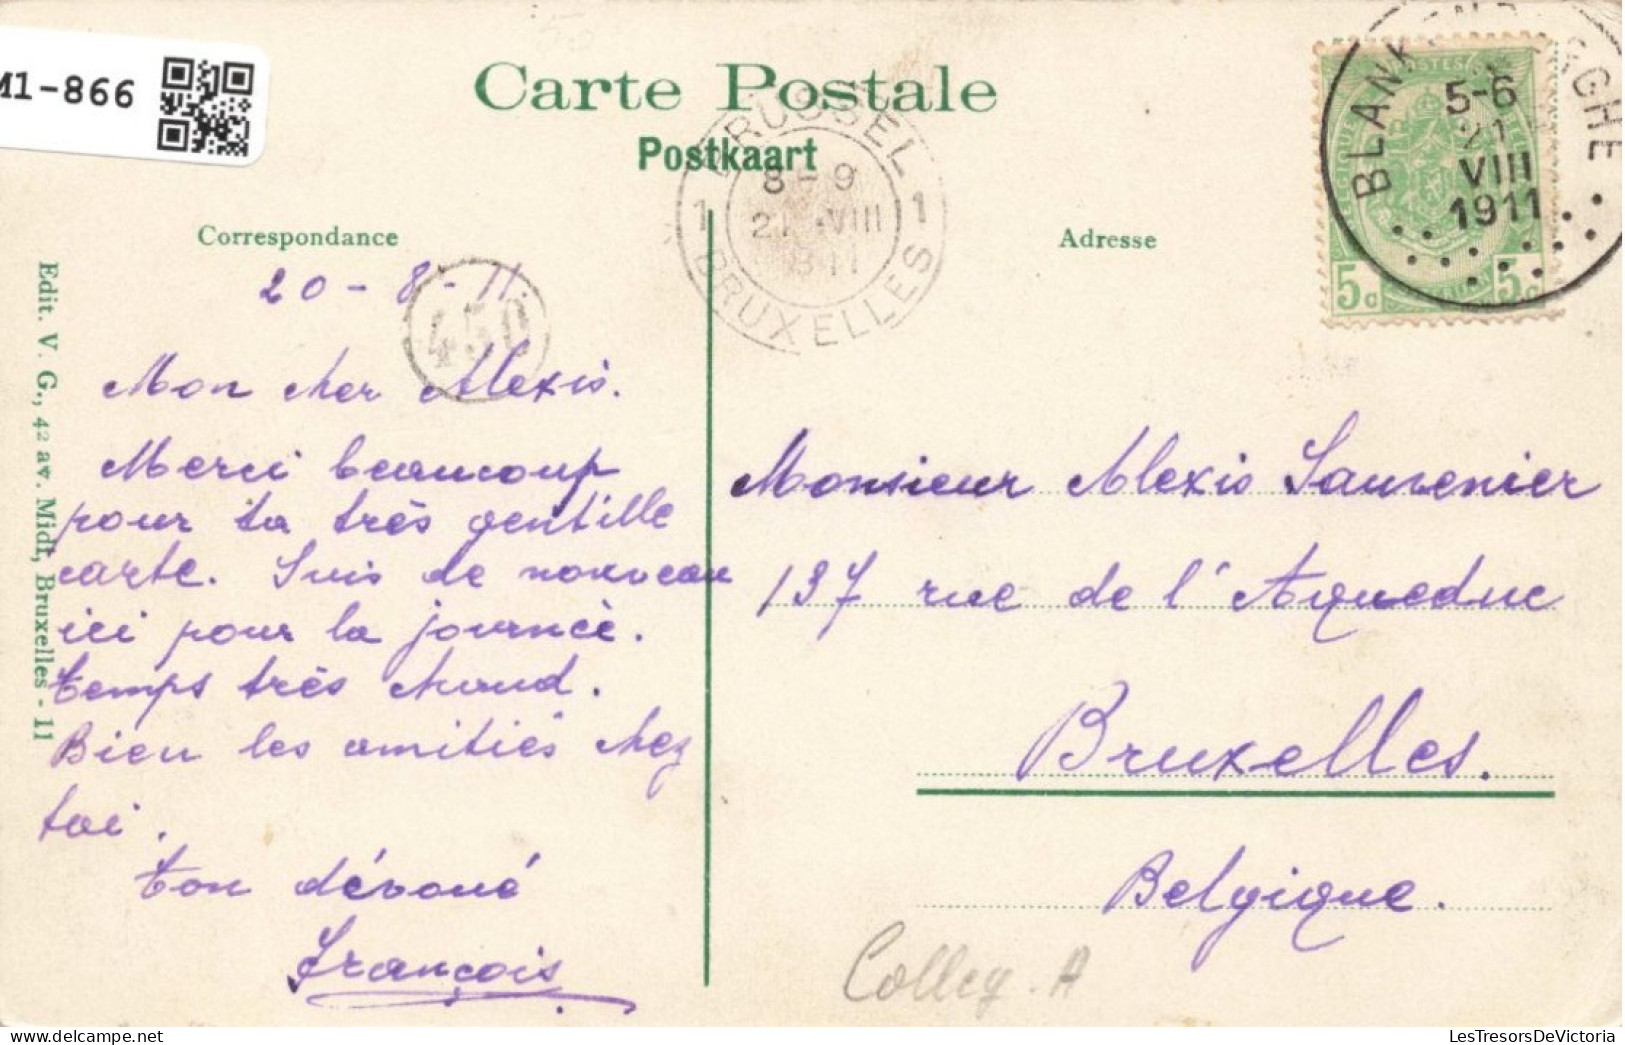 M1-866
Carte Postale
Postkaart
BRUSSEL
8-9
21 VIII
1 1
BRUXELLES
BLANKENBERGHE
5-6
21
VIII
1911
5c 5c
Correspondance
Adresse
450
20-8-11.
Mon cher Alexis.
Merci beaucoup
pour ta très gentille
carte. Suis de nouveau
ici pour la journée.
temps très chaud.
Bien les amitiés chez
toi.
ton dévoué
François
Monsieur Alexis Saurenier
137 rue de l'Aqueduc
Bruxelles.
Belgique.
Edit. V. G., 42 av. Midi, Bruxelles - 11
LesTresorsDeVictoria.com